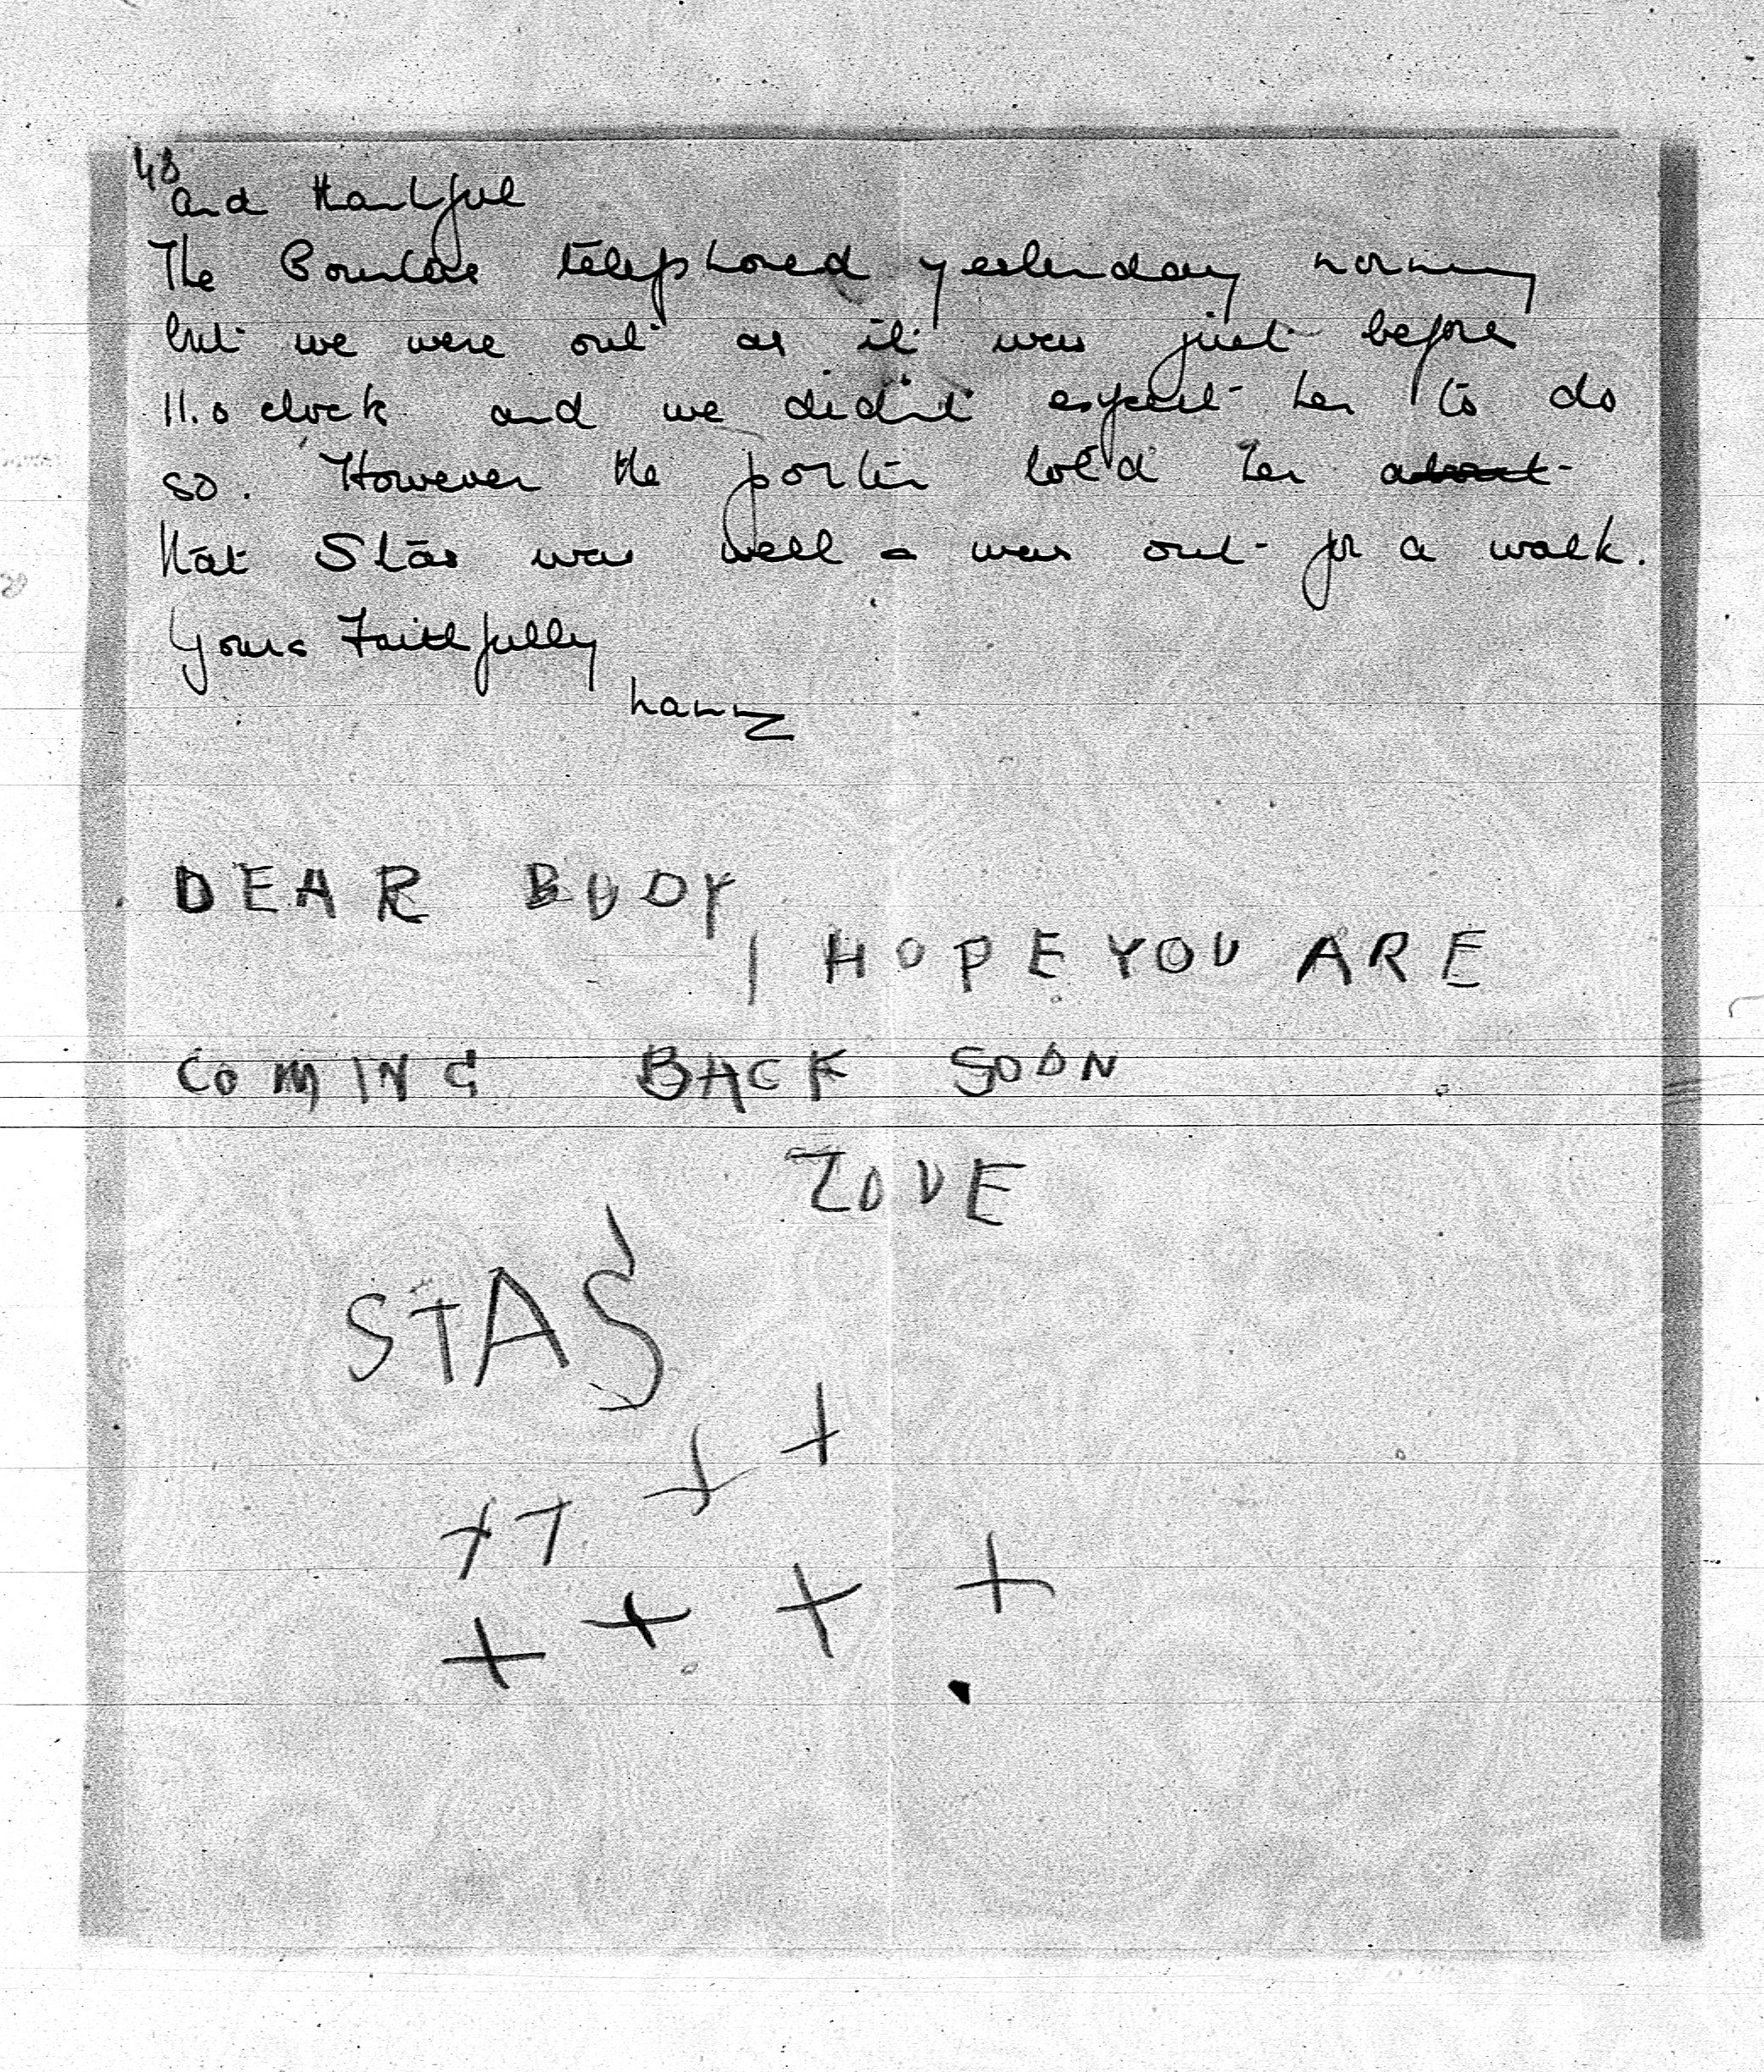 48
and thankful
The Comtesse telephoned yesterday morning
but we were out as it was just before
11.o clock and we didn't expect her to do
so. However the porter told her about
that Stas was well & was out for a walk.
Yours Faithfully
Nanny
DEAR BUDY
I HOPE YOU ARE
COMING BACK SOON
LOVE
STAS
+ + + +
+ + + +